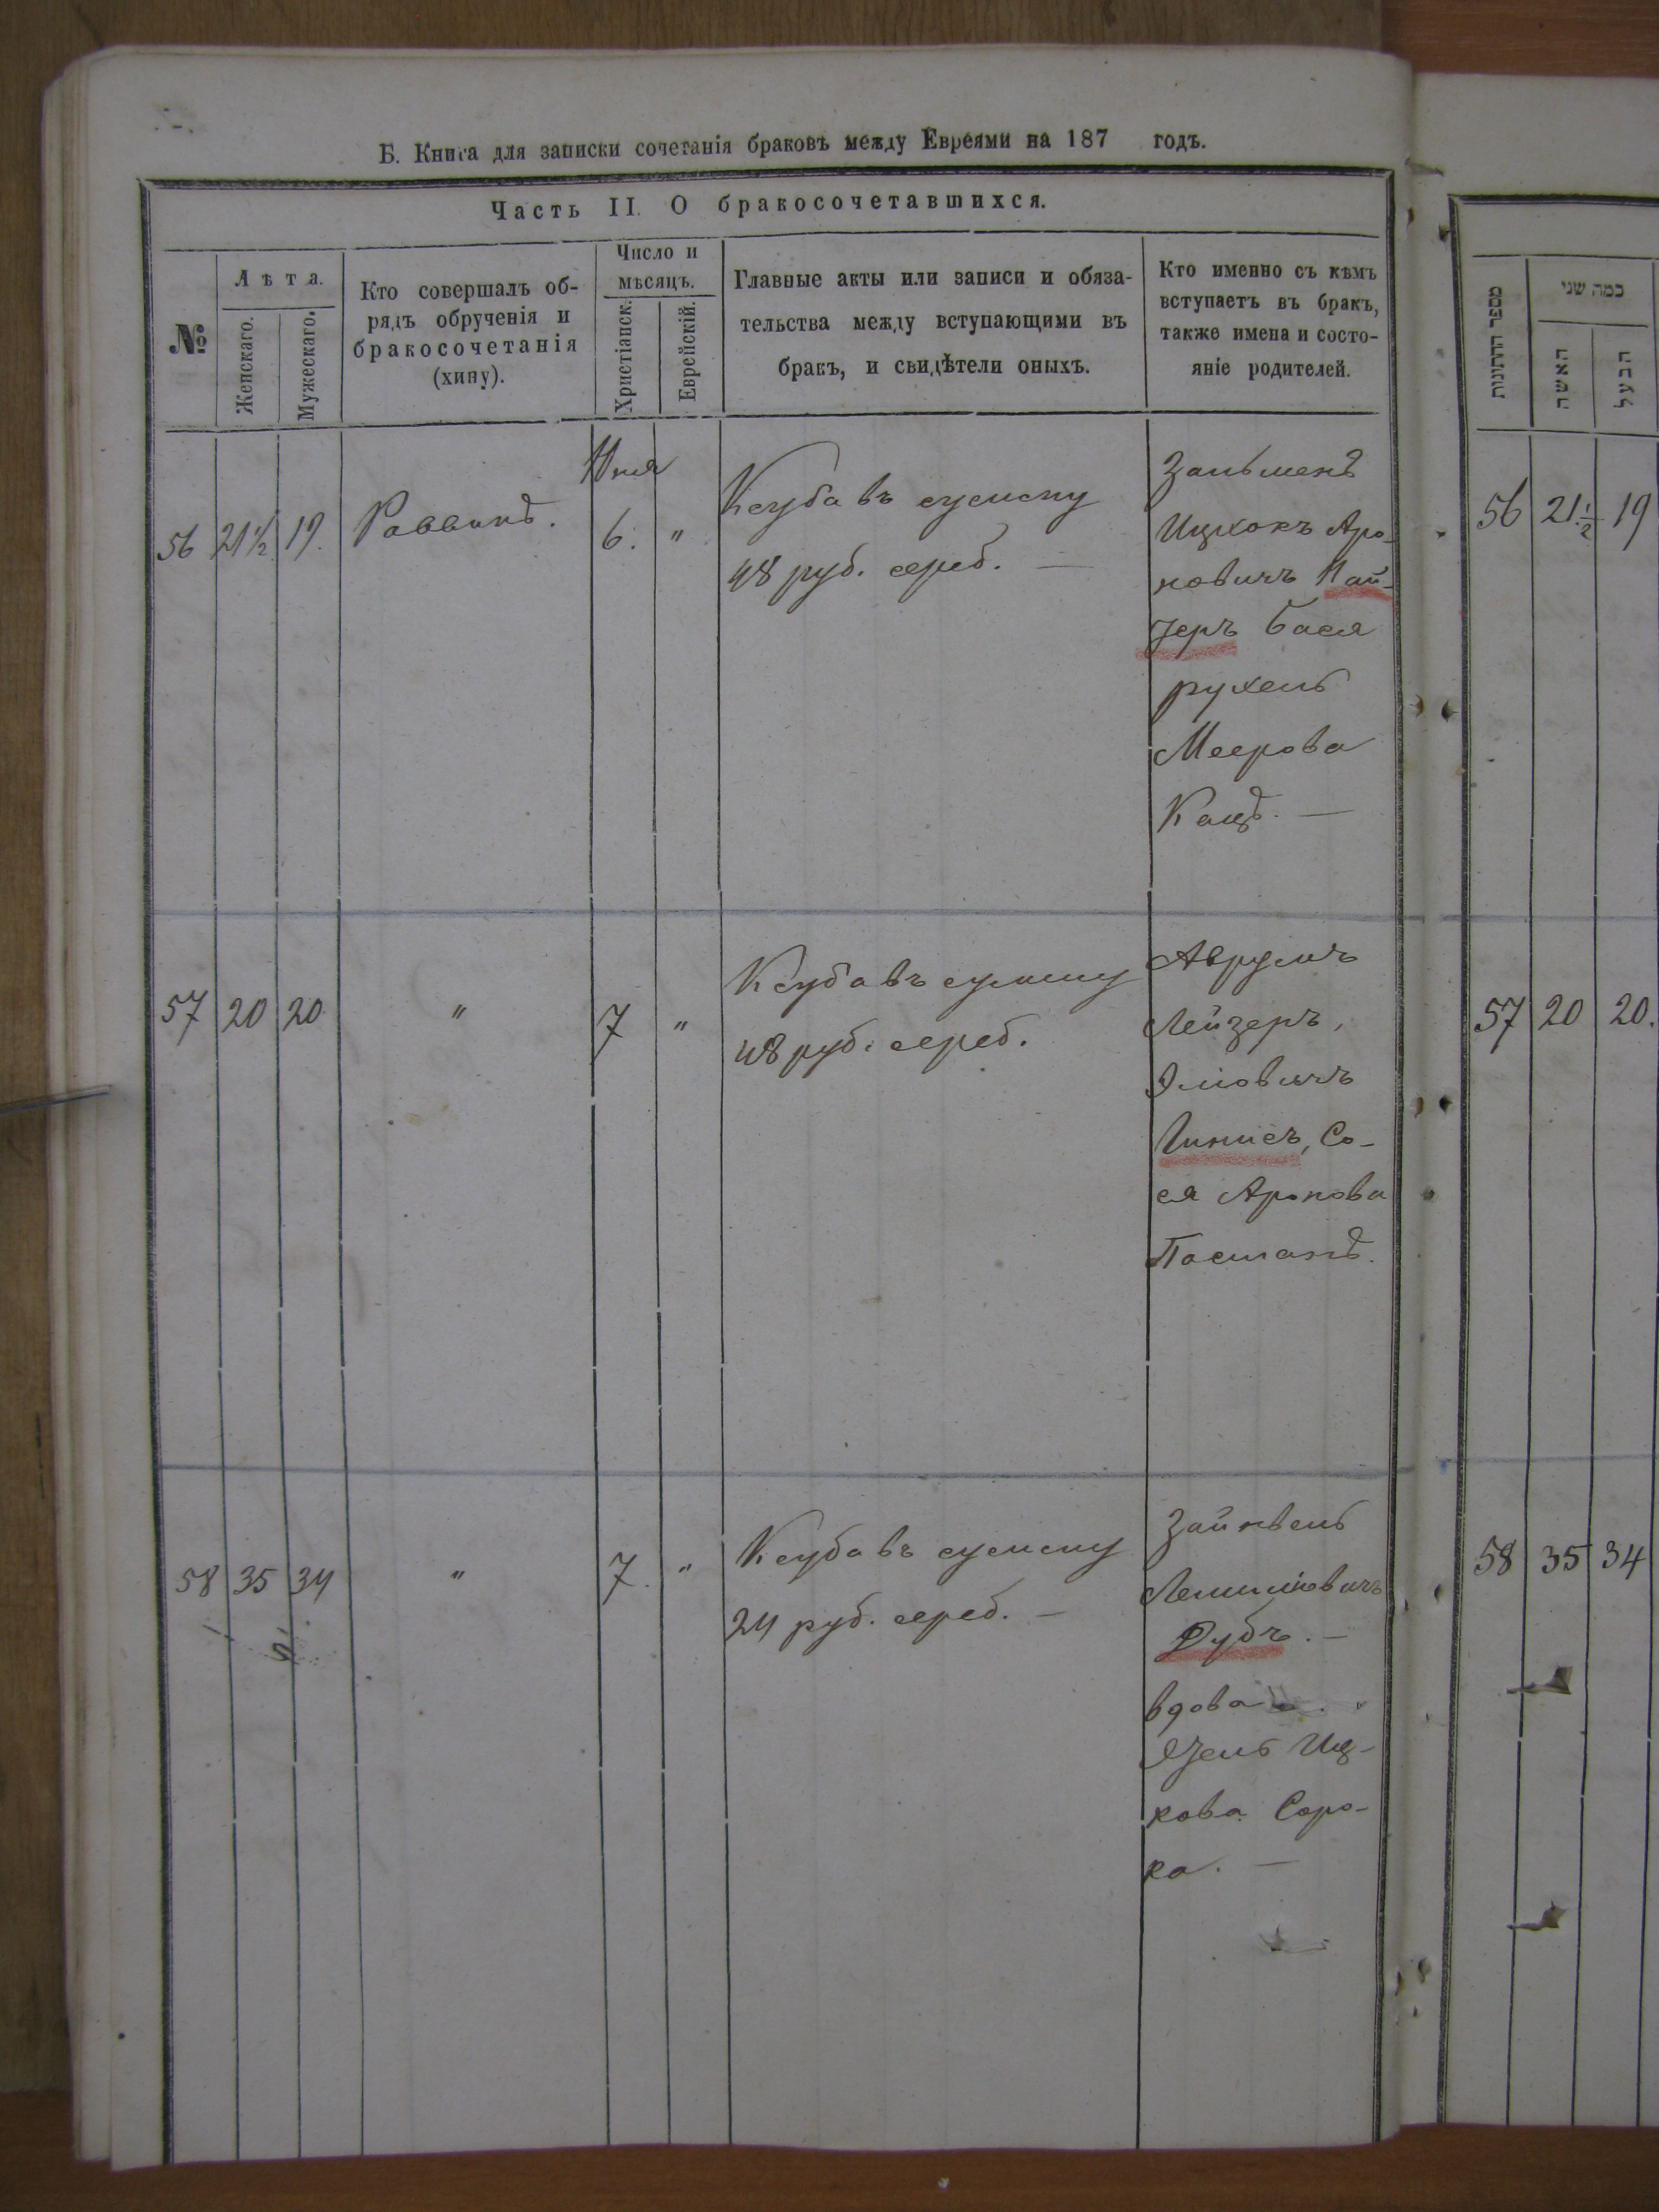 Б. Книга для записки сочетанія браковъ между Евреями на 187 годъ.
Часть II. О бракосочетавшихся.
№
Лѣта.
Женскаго.
Мужескаго.
Кто совершалъ об-
рядъ обрученія и
бракосочетанія
(хипу).
Число и
мѣсяцъ.
Христіанск.
Еврейскій.
Главные акты или записи и обяза-
тельства между вступающими въ
бракъ, и свидѣтели оныхъ.
Кто именно съ кѣмъ
вступаетъ въ бракъ,
также имена и состо-
яніе родителей.
56 21 1/2 19. Раввинъ.
6. "
Ксуба въ сумму
48 руб. сереб. —
Зальменъ
Ицхокъ Аро-
новичъ
Бася
рухель
Меерова
Кацъ. —
57 20 20 " 7 "
Ксуба въ сумму
48 руб. сереб.
Аврумъ
Лейзеръ,
Со-
ся Аронова
58 35 34 " 7. "
Ксуба въ сумму
24 руб. сереб. —
Зайнвель
Дубъ. —
вдова
Иц-
кова Соро-
ка. —
מספר החתונות
כמה שני
האשה
הבעל
56 21 1/2 19
57 20 20.
58 35 34